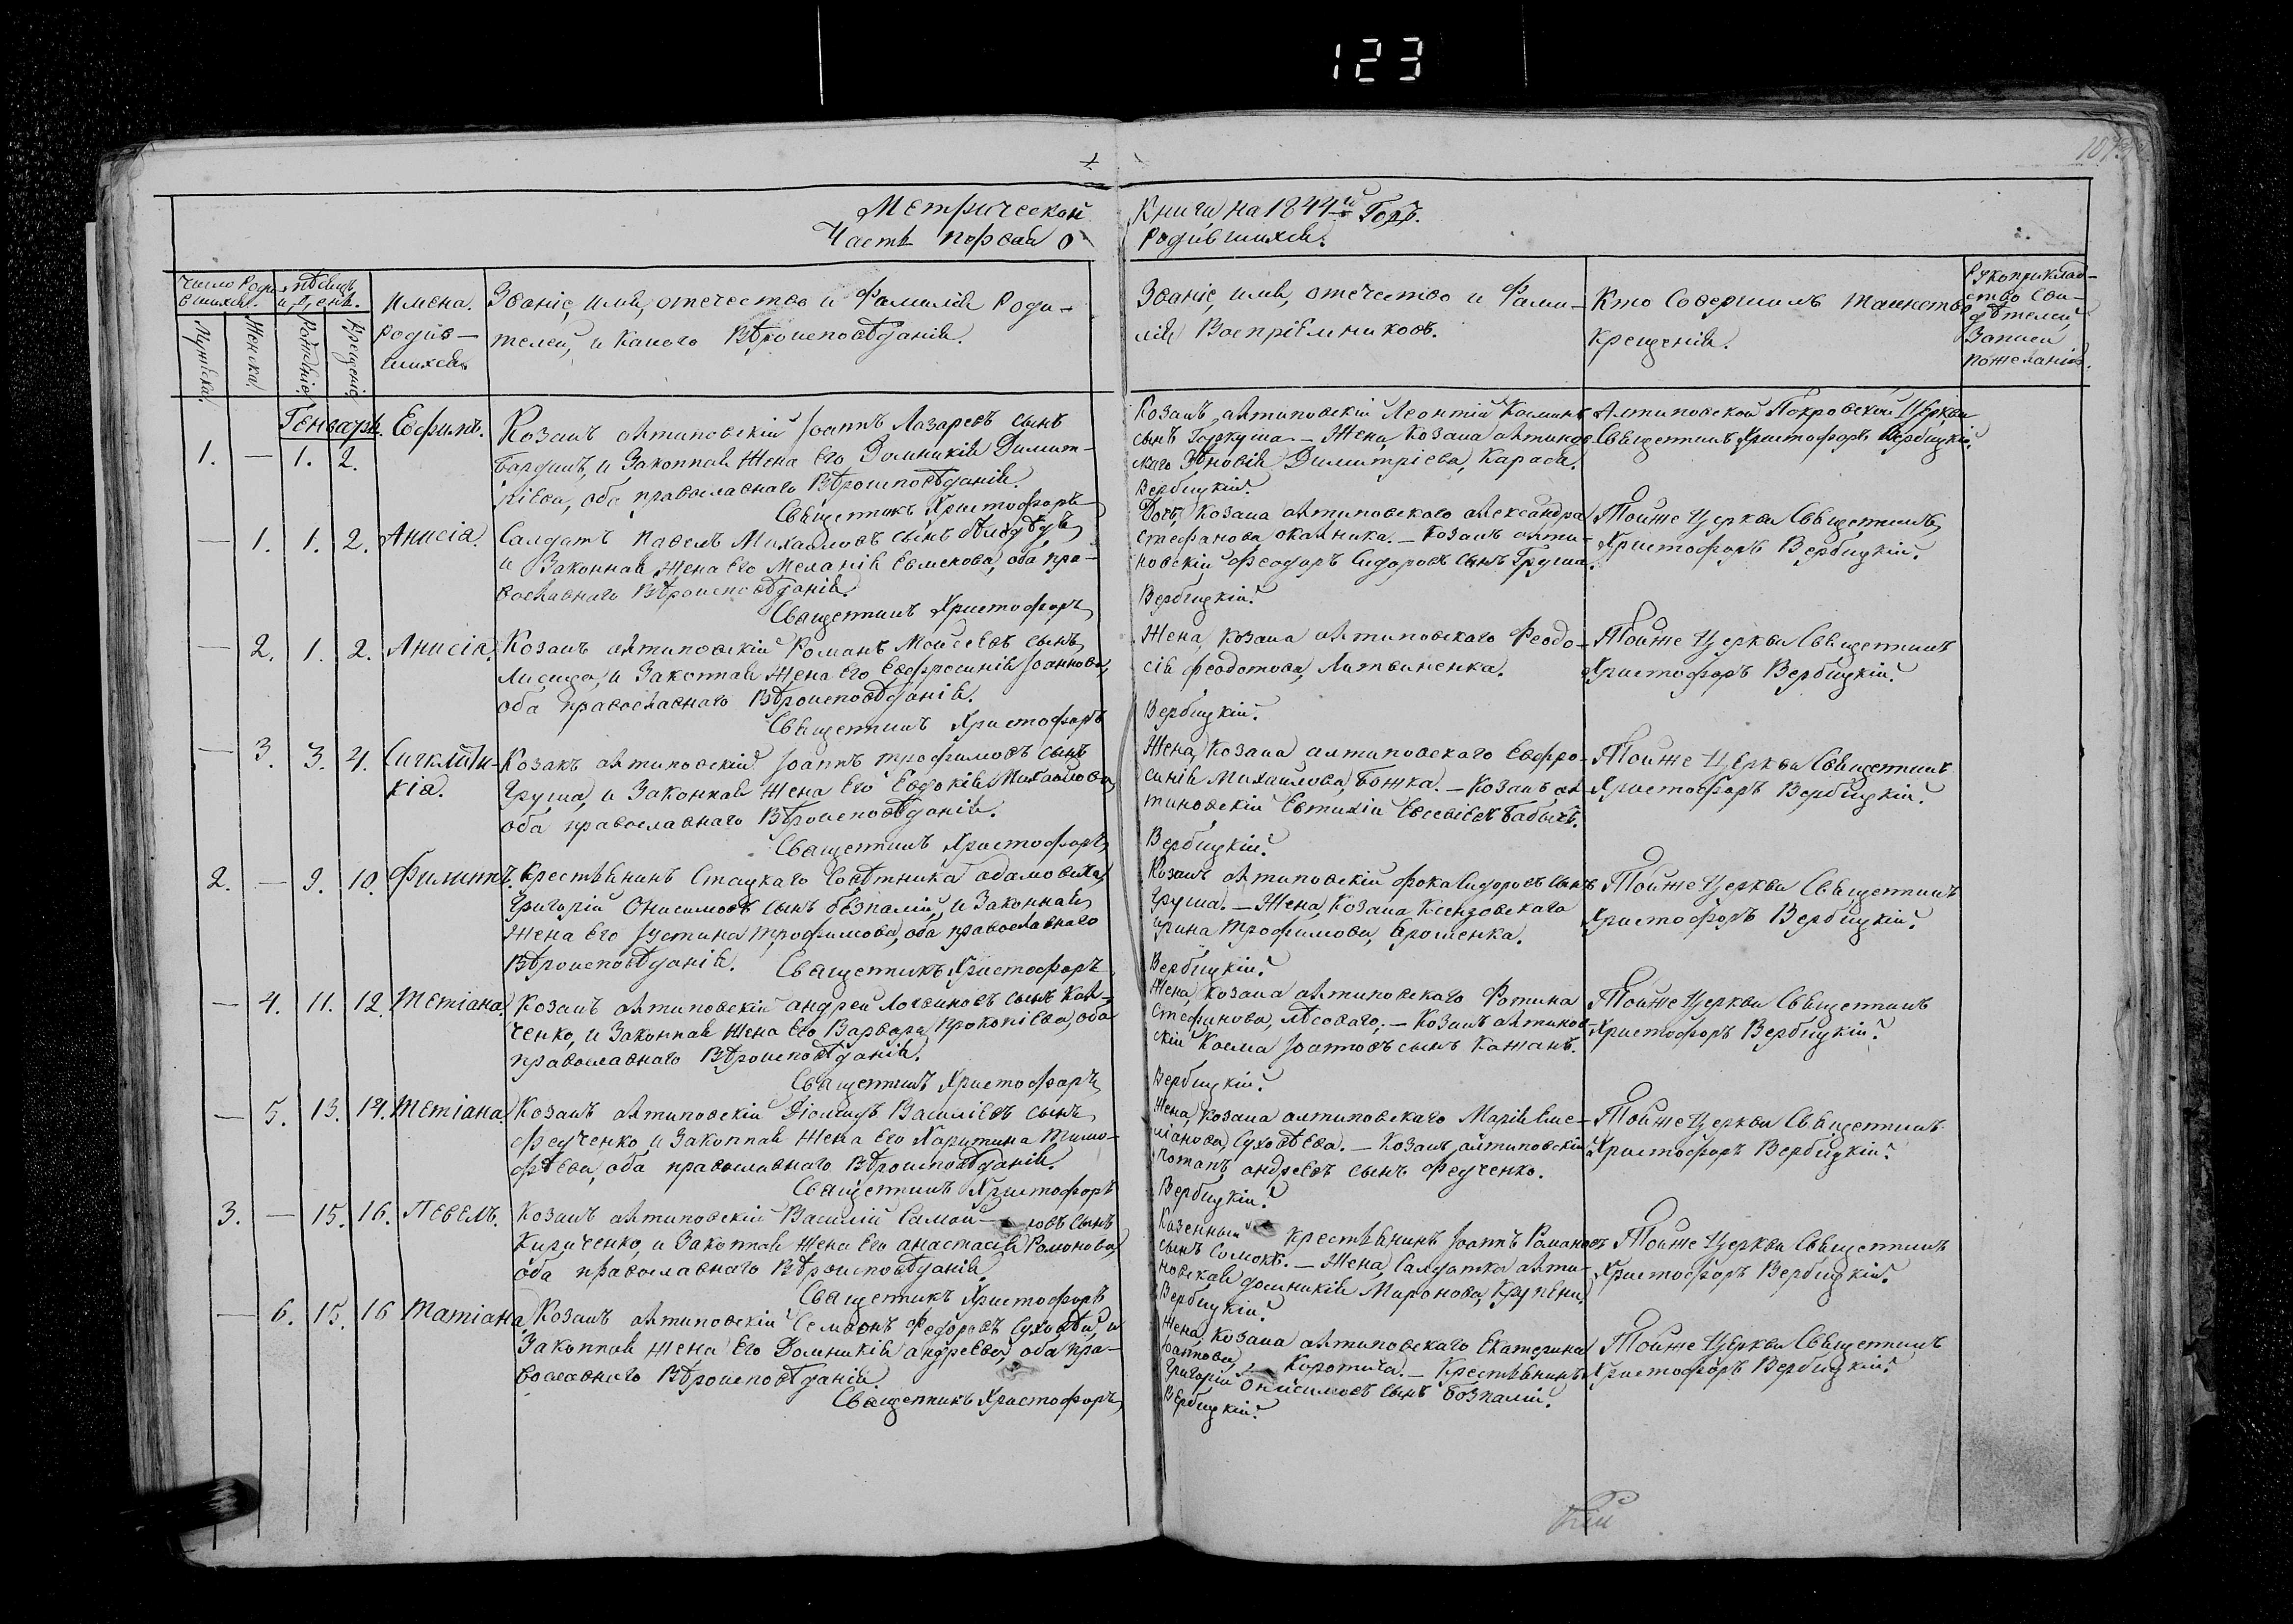 123
107
Метрической Книги на 1844й Годъ.
Часть первая о родившихся.
Число роди- мѣсяцъ
вшихся. и день.
Мужеска. Женска. Рожденіе. Крещеніе.
Имена.
родив-
шихся.
Званіе, имя, отечество и Фамилія Роди-
телей, и какого Вѣроисповѣданія.
Званіе, имя, отечество и Фами-
лія Воспріемниковъ.
Кто Совершилъ таинство
Крещенія.
Рукоприклад-
ство Сви-
дѣтелей
Записи
по желанію.
Генварь.
1. — 1. 2. Ефимъ.
Козакъ антиповскій Іоаннъ Лазаревъ сынъ
и Законная Жена Его Домникія Димит-
ріева, оба православнаго Вѣроисповѣданія.
Священникъ Христофоръ
Козакъ антиповскій Леонтій
сынъ Жена Козака антипов-
скаго Зѣновія Димитріева, Карася.
Вербицкій.
Антиповской Покровской Церкви
Священникъ Христофоръ Вербицкій.
— 1. 1. 2. Анисія.
Салдатъ Павелъ Михайловъ сынъ
и Законная Жена Его Меланія оба пра-
вославнаго Вѣроисповѣданія.
Священникъ Христофоръ
Дочь Козака антиповскаго александра
Стефанова — Козакъ анти-
повскій Феодоръ Сидоровъ сынъ Груша.
Вербицкій.
Тойже Церкви Священникъ
Христофоръ Вербицкій.
— 2. 1. 2. Анисія.
Козакъ антиповскій Романъ Мойсеевъ сынъ
Лисица, и Законная Жена Его Евфросинія Іоаннова,
оба православнаго Вѣроисповѣданія.
Священникъ Христофоръ
Жена Козака антиповскаго Феодо-
сія Феодотова, Литвиненка.
Вербицкій.
Тойже Церкви Священникъ
Христофоръ Вербицкій.
— 3. 3. 4.
кія.
Козакъ антиповскій Іоаннъ трофимовъ сынъ
Груша, и Законная Жена Его Евдокія Михайлова
оба православнаго Вѣроисповѣданія.
Священникъ Христофоръ
Жена Козака антиповскаго Евфро-
синія Михайлова, Божка. — Козакъ ан-
типовскій Евтихій Евсевіевъ
Вербицкій.
Тойже Церкви Священникъ
Христофоръ Вербицкій.
2. — 9. 10. Филиппъ.
Крестьянинъ Стацкаго Совѣтника
Григорій Онисимовъ сынъ безпалій, и Законная
Жена Его Іустина трофимова, оба православнаго
Вѣроисповѣданія. Священникъ Христофоръ
Козакъ антиповскій фока Сидоровъ сынъ
Груша. — Жена Козака
ирина Трофимова, Ярошенка.
Вербицкій.
Тойже Церкви Священникъ
Христофоръ Вербицкій.
— 4. 11. 12. Тетіана.
Козакъ антиповскій андрей Логвиновъ сынъ
ченко, и Законная Жена Его Варвара Прокопіева, оба
православнаго Вѣроисповѣданія.
Священникъ Христофоръ
Жена Козака антиповскаго Фотина
Стефанова, лѣсоваго. — Козакъ антипов-
скій Козма Іоанновъ сынъ Кажанъ.
Вербицкій.
Тойже Церкви Священникъ
Христофоръ Вербицкій.
— 5. 13. 14. Тетіана.
Козакъ антиповскій Діомидъ Василіевъ сынъ
Федченко, и Законная Жена Его Харитина тимо-
фѣева, оба православнаго Вѣроисповѣданія.
Священникъ Христофоръ
Жена, Козака антиповскаго Марія Еме-
ліанова, Суховѣева. — Козакъ антиповскій
Потапъ андреевъ сынъ Федченко.
Вербицкій.
Тойже Церкви Священникъ
Христофоръ Вербицкій.
3. — 15. 16. Певелъ.
Козакъ антиповскій Василій Самой—ловъ сынъ
Кириченко, и Законная Жена Его анастасія Романова
оба православнаго Вѣроисповѣданія.
Священникъ Христофоръ
Казенный крестьянинъ Іоаннъ Романовъ
сынъ — Жена, Салдатка анти-
повская домникія Миронова,
Вербицкій.
Тойже Церкви Священникъ
Христофоръ Вербицкій.
— 6. 15. 16 Татіана
Козакъ антиповскій Семеонъ Федоровъ Суховѣй, и
Законная Жена Его Домникія андреева, оба пра-
вославнаго Вѣроисповѣданія
Священникъ Христофоръ
Жена, Козака антиповскаго Екатерина
Іоаннова, Коротича. — Крестьянинъ
Григорій Онисимовъ сынъ Безпалій.
Вербицкій.
Тойже Церкви Священникъ
Христофоръ Вербицкій.